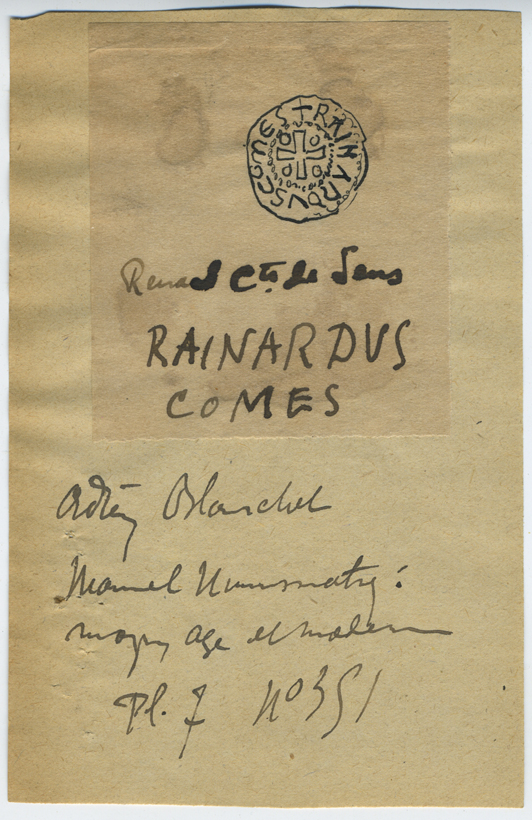 +RAINARDVSCOMES
Renard Cte de Sens
RAINARDVS
COMES
Adrien Blanchet
Manuel Numismatiq:
moyen age et moderne
Pl. 7 No 351